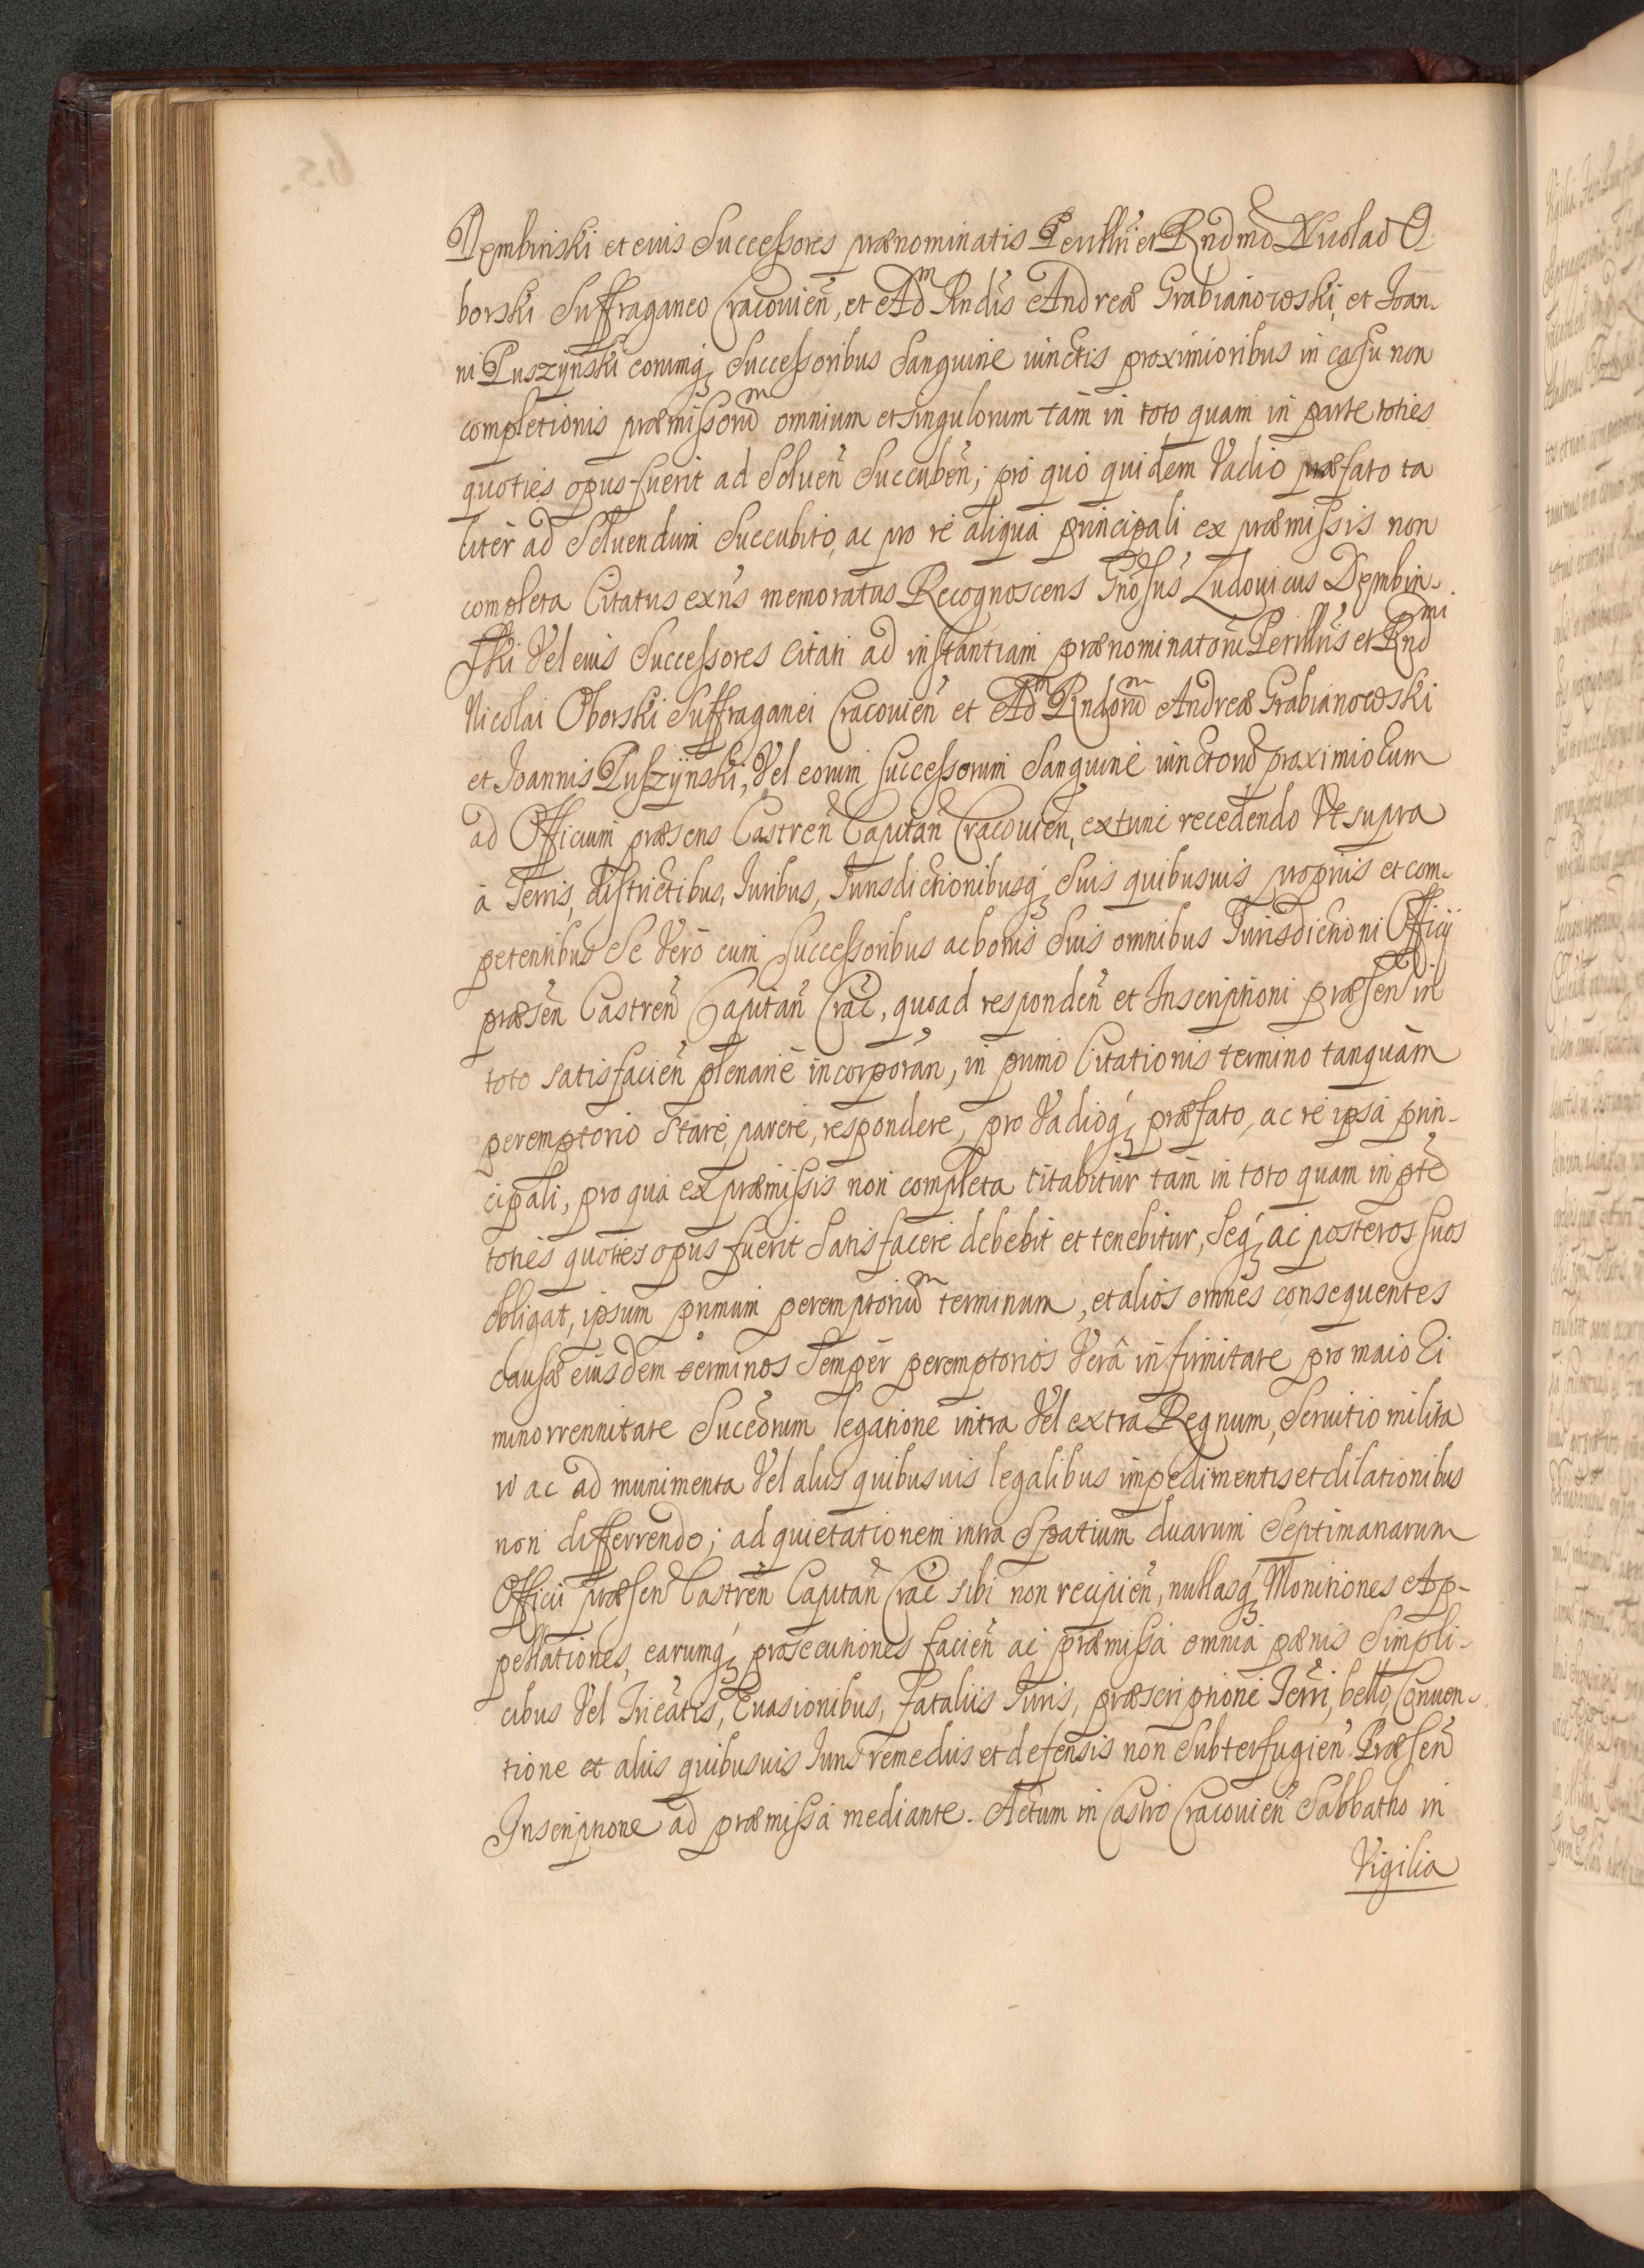 Dembinski et eius Successores prænominatis Perilłri et Rndmo Nicolao O
borski Suffraganeo Cracouien̄, et Adm Rndis Andreæ Grabianowski, et Ioan-
ni Puszÿnski eorumq3 Successoribus Sanguine iunctis proximioribus in casu non
completionis præmissorum omnium et singulorum tam in toto quam in parte toties
quoties opus fuerit ad Soluen̄ Succuben̄; pro quo quidem Vadio præfato ta
liter ad Soluendum Succubito, ac pro re aliqua principali ex præmissis non
completa Citatus exn̄s memoratus Recognoscens Gnosus Ludouicus Dembin-
ski Vel eius Successores Citati ad instantiam prænominatorum Perillris et Rndmi
Nicolai Oborski Suffraganei Cracouien̄ et Adm Rndorum Andreæ Grabianowski
et Ioannis Puszÿnski, Vel eorum successorum Sanguine iunctorum proximiorum
ad Officium præsens Castren̄ Capitan̄ Cracouien̄, extunc recedendo Vt supra
à Terris, districtibus, Iuribus, Iurisdictionibusq3 Suis quibusuis propriis et com-
petentibus Se Verò cum Successoribus ac bonis Suis omnibus Iurisdictioni Officij
præsen̄ Castren̄ Capitan̄ Crac̄, quoad responden̄ et Inscriptioni præsen̄ in
toto satisfacien̄ plenariè incorporan̄, in primo Citationis termino tanquam
peremptorio Stare, parere, respondere, pro Vadioq3 præfato, ac re ipsa prin-
cipali, pro qua ex præmissis non completa citabitur tam in toto quam in pte
toties quoties opus fuerit Satisfacere debebit et tenebitur, Seq3 ac posteros suos
obligat, ipsum primum peremptorium terminum, et alios omnes consequentes
causæ eiusdem terminos Semper peremptorios Verâ infirmitate pro maiori
minorrennitate Succorum legatione intra Vel extra Regnum, Seruitio milita
ri ac ad munimenta Vel aliis quibusuis legalibus impedimentis et dilationibus
non differrendo; ad quietationem intra Spatium duarum Septimanarum
Officii præsen̄ Castren̄ Capitan̄ Crac̄ sibi non recipien̄, nullasq3 Monitiones Ap-
pellationes, earumq3 prosecutiones facien̄ ac præmissa omnia pænis Simpli-
cibus Vel Tricatis, Euasionibus, fataliis Iuris, præscriptione Terri, bello, Conuen-
tione et aliis quibusuis Iuris remediis et defensis non Subterfugien̄ Præsen̄
Inscriptione ad præmissa mediante. Actum in Castro Cracouien̄ Sabbatho in
Vigilia